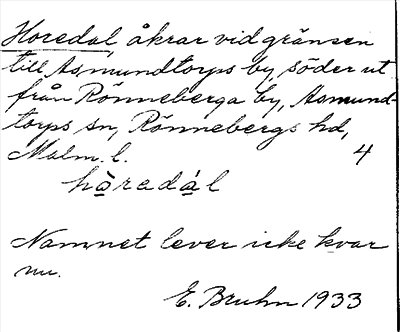 Horedal, åkrar vid gränsen
till Asmundtorps by, söder ut
från Rönneberga by, Asmund-
torps sn, Rönnebergs hd,
Malm. l. 4
hòredál
Namnet lever icke kvar
nu.
E. Bruhn 1933